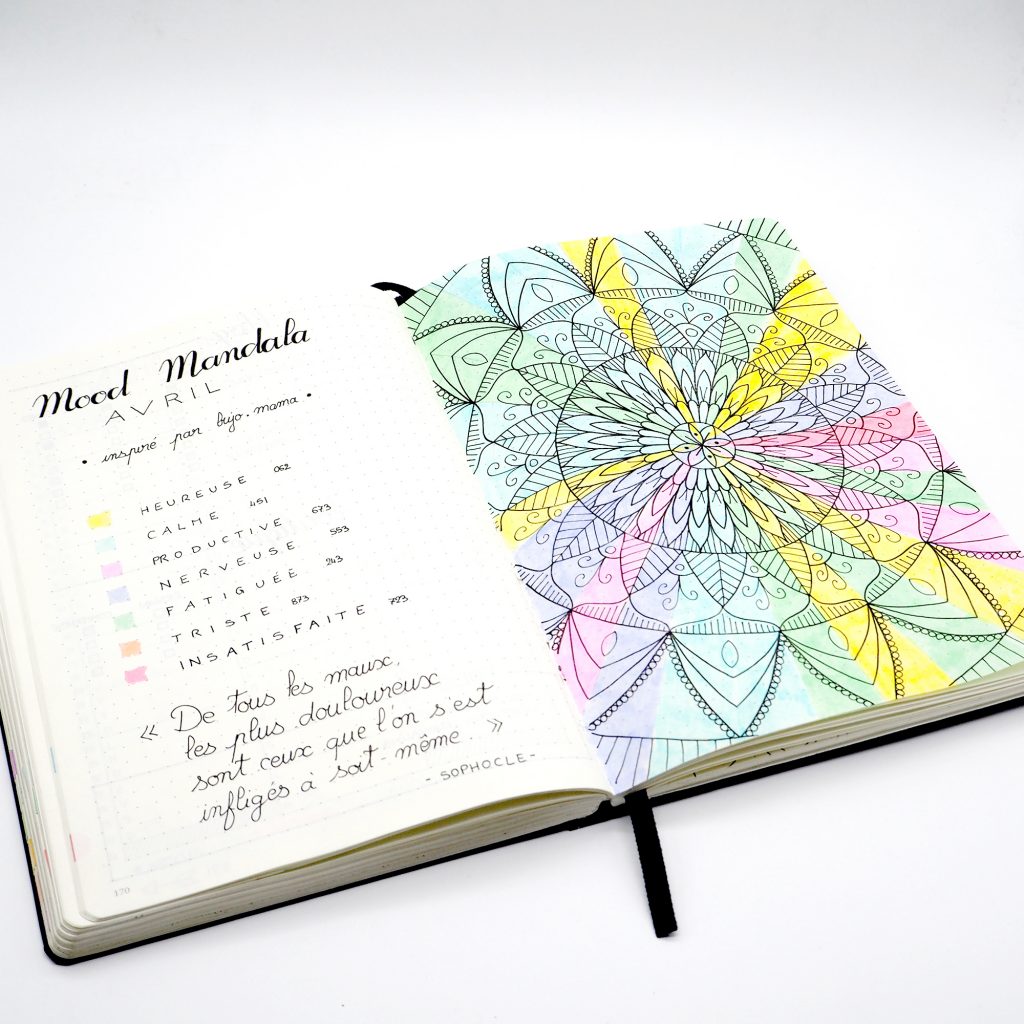 Mood Mandala
AVRIL
• inspiré par bujo.mama •
HEUREUSE 062
CALME 451
PRODUCTIVE 673
NERVEUSE 553
FATIGUÉE 243
TRISTE 873
INSATISFAITE 723
« De tous les maux,
les plus douloureux
sont ceux que l'on s'est
infligés à soit-même. »
- SOPHOCLE -
170